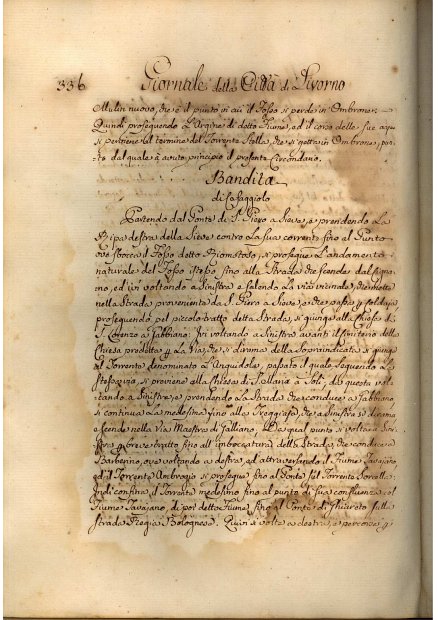 336 Giornale della Città di Livorno
Mulin nuovo, che è il punto in cui il Fosso si perde in Ombrone.
Quindi proseguendo l'Argine di detto Fiume, ed il corso delle sue acque
si perviene al termine del Torrente Stella, che si getta in Ombrone, pun-
to dal quale à avuto principio il presente Circondario.
Bandita
di Cafaggiolo
Partendo dal Ponte di S. Piero a Sieve, e prendendo la
Ripa destra della Sieve contro la sua corrente fino al Punto
ove sbocca il Fosso detto, si prosegue l'andamento
naturale del Fosso istesso fino alla Strada che scende dal
ed ivi voltando a Sinistra e salendo la vicinale, che mette
nella Strada proveniente da S. Piero a Sieve, e che passa p
proseguendo pel piccolo tratto della Strada, si giunge alla Chiesa di
S. Lorenzo a Gabbiano: ivi voltando a Sinistra avanti il Cimiterio della
Chiesa predetta p la Via, che si dirama della Sopraindicata si giunge
al Torrente denominato, passato il quale seguendo la
si perviene alla Chiesa di a Soli; da questa vol-
tando a Sinistra, e prendendo la Strada che conduce a Gabbiano
si continua la medesima fino alla, che a Sinistra si dirama
e scende nella Via Maestra di Galliano. Da qual punto si volta a Sini-
stra p breve tratto fino all'imboccatura della Strada, che conduce a
Barberino, ove voltando a destra, ed attraversando il Fiume Tavajano,
ed il Torrente si prosegue fino al Ponte sul Torrente
Indi confina il Torrente medesimo fino al punto di sua confluenza col
Fiume Tavajano, di poi detto Fiume, fino al Ponte di Ghiereto sulla
Strada Regia Bolognese. Quivi si volta a destra, e percorre p